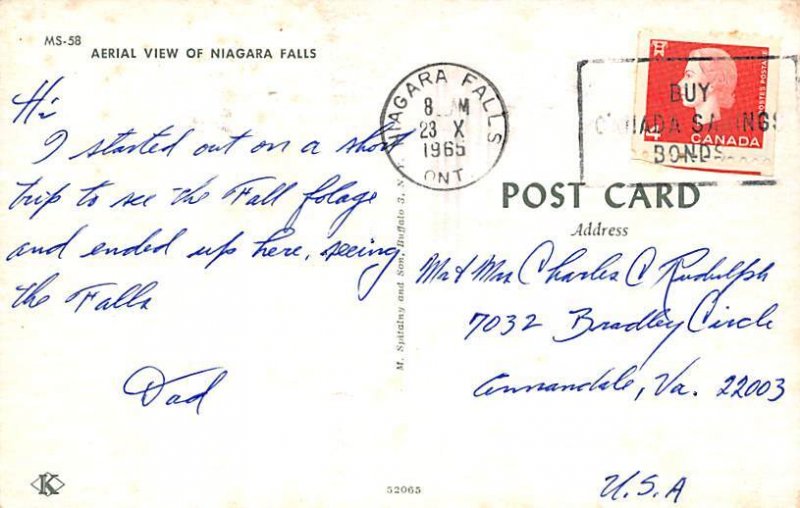 MS-58
AERIAL VIEW OF NIAGARA FALLS
Hi
I started out on a short
trip to see the Fall folage
and ended up here, seeing
the Falls
Dad
K
NIAGARA FALLS
8 AM
23 X
1965
ONT.
BUY
CANADA SAVINGS
BONDS
POSTES POSTAGE
4
CANADA
POST CARD
Address
Mr & Mrs Charles C Rudolph
7032 Bradley Circle
Annandale, Va. 22003
U.S.A
M. Spitalny and Son, Buffalo 3, N. Y.
52065